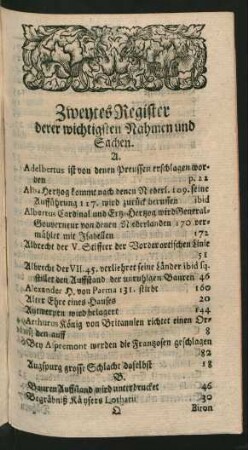 Zweytes Register
derer wichtigsten Nahmen und
Sachen.
A.
Adelbertus ist von denen Preussen erschlagen wor-
den p. 22
Alba Hertzog kommt nach denen Nederl. 109. seine
Aufführung 117. wird zurück beruffen ibid
Albertus Cardinal und Ertz-Hertzog wird General-
Gouverneur von denen Niederlanden 170 ver-
mählet mit Isabellen 172
Albrecht der V. Stiffter der Vorderoestischen Linie
51
Albrecht der VII. 45. verliehret seine Länder ibid
stillet den Auffstand der unruhigen Bauren 46
Alexander H. von Parma 131. stirbt 160
Alter Ehre eines Hauses 20
Antwerpen wird belagert 144
Arthurus König von Britannien richtet einen Or-
den auff 8
Bey Aspremont werden die Frantzosen geschlagen
82
Augspurg grosse Schlacht daselbst 18
B.
Bauren Auffstand wird unterdrucket 46
Begräbniß Käysers Lotharii 30
Q Biron